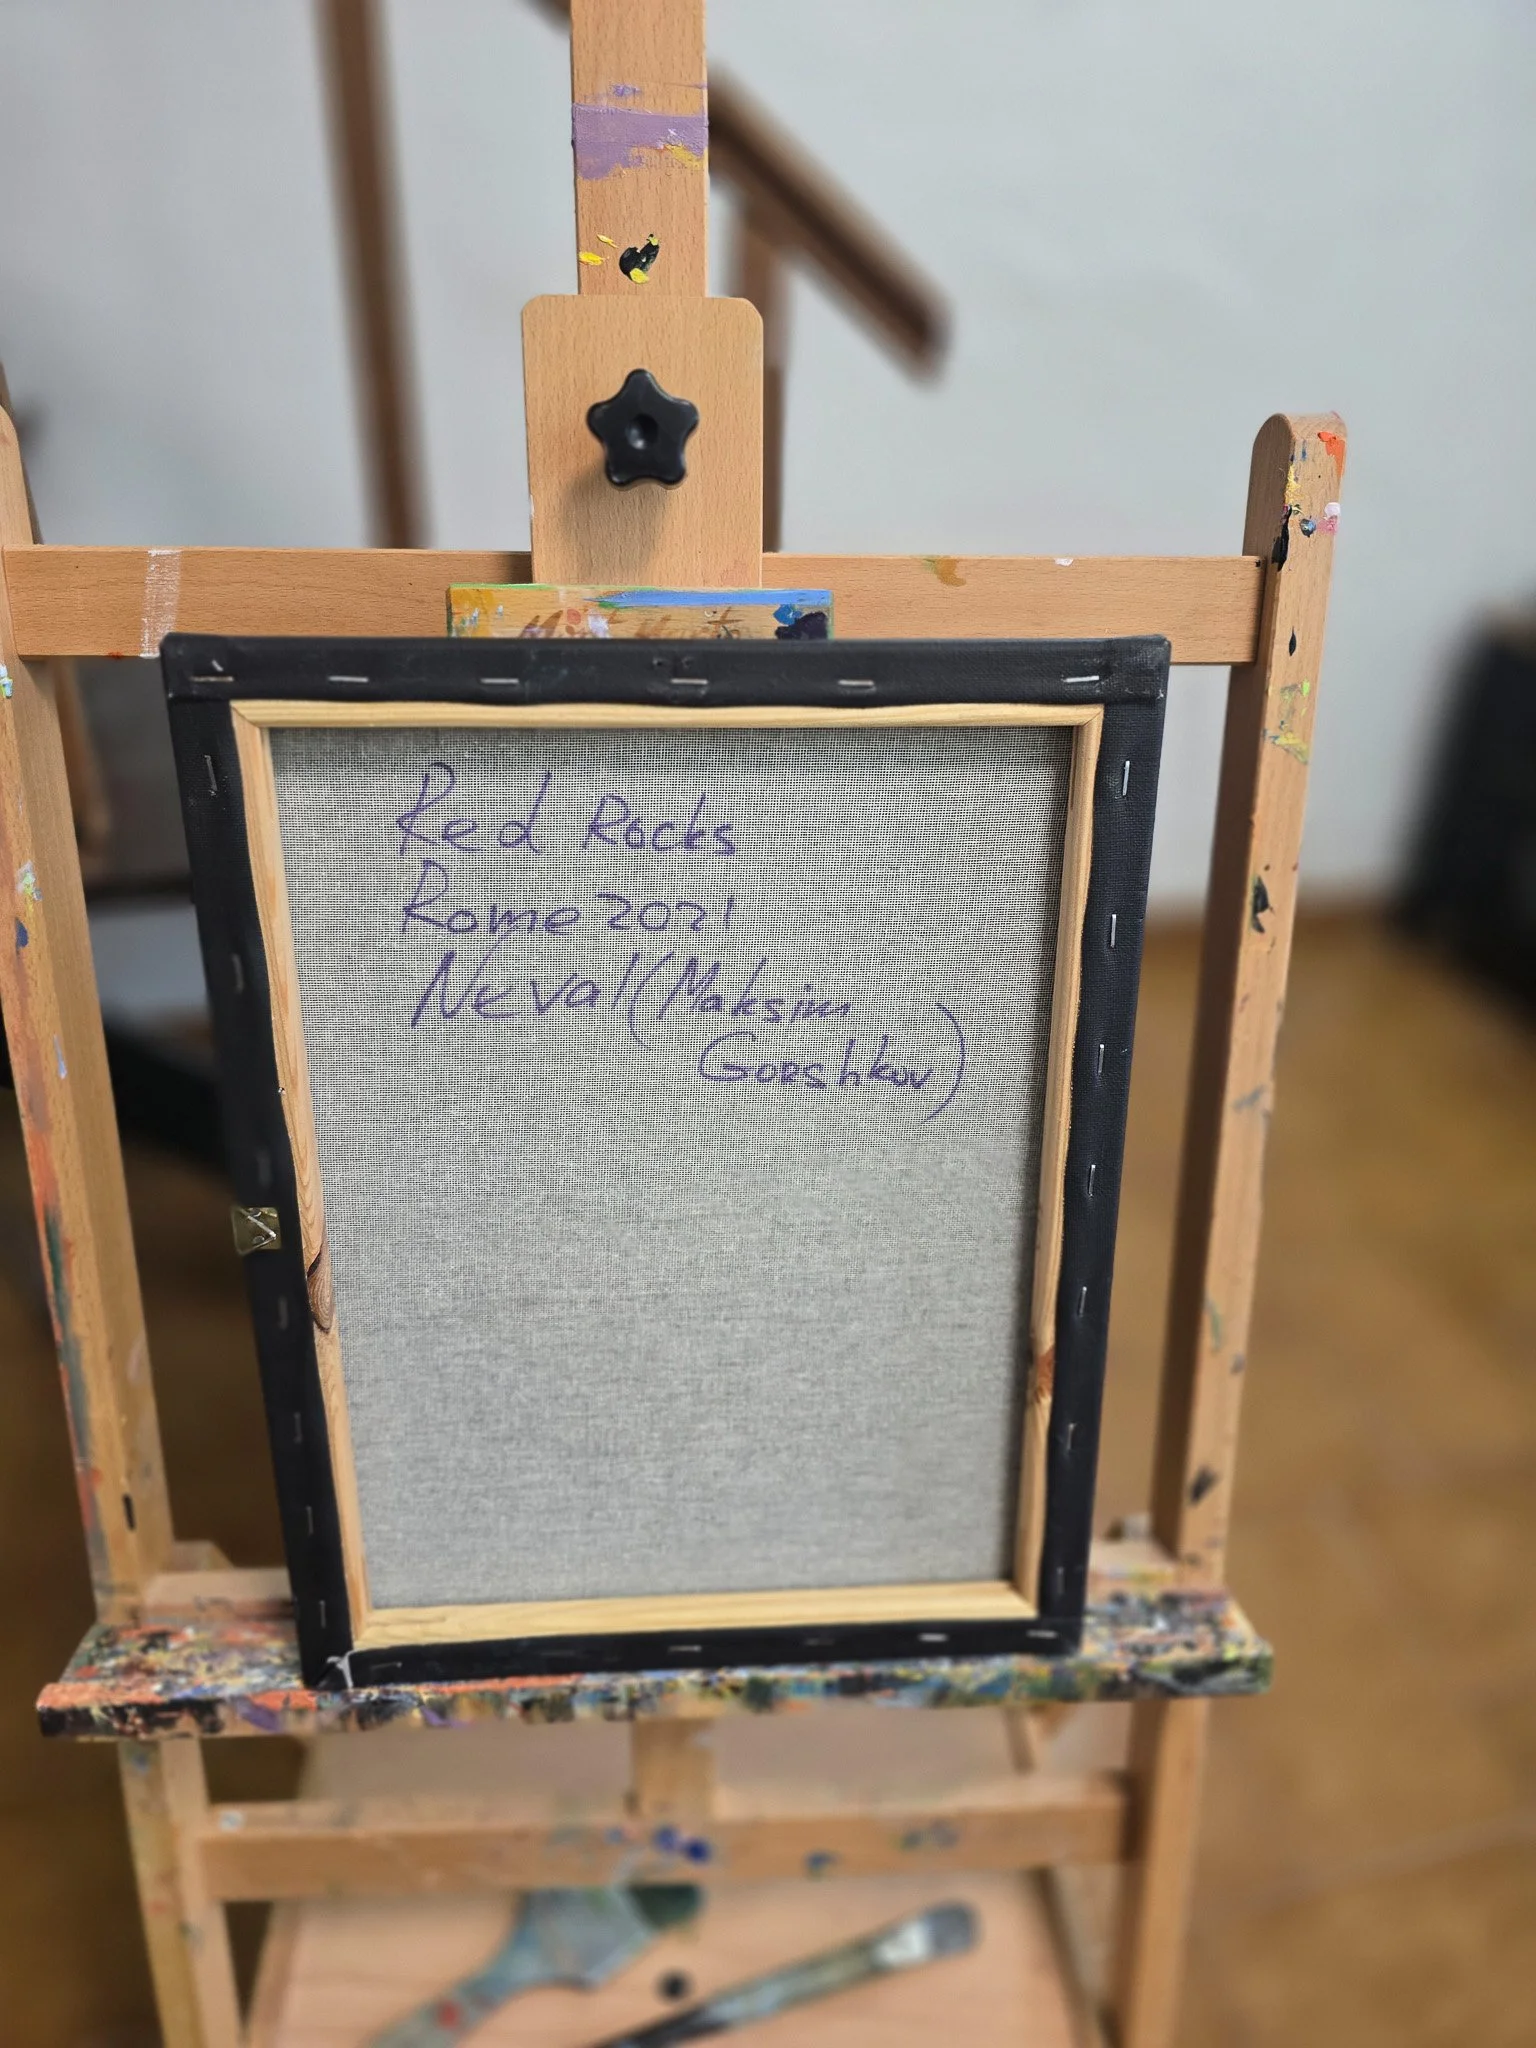 Red Rocks
Rome 2021
Neval (Maksim
Gorshkov)